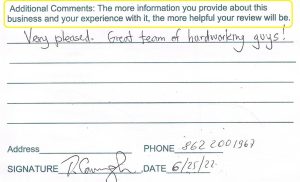 Additional Comments: The more information you provide about this
business and your experience with it, the more helpful your review will be.
Very pleased. Great team of hardworking guys!
Address PHONE 862 2001967
SIGNATURE DATE 6/25/22